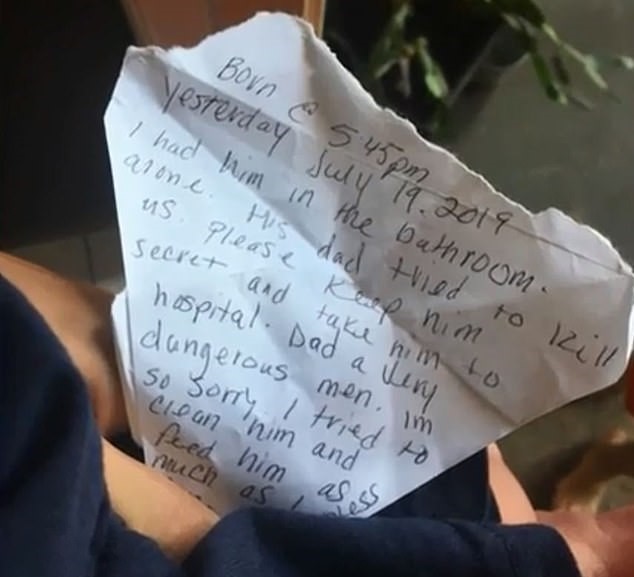 Born @ 5:45pm
Yesterday July 19. 2019
I had him in the bathroom.
alone. His dad tried to kill
us. Please keep him
secret and take him to
hospital. Dad a very
dangerous men. Im
so sorry. I tried to
clean him and
feed him as
much as I